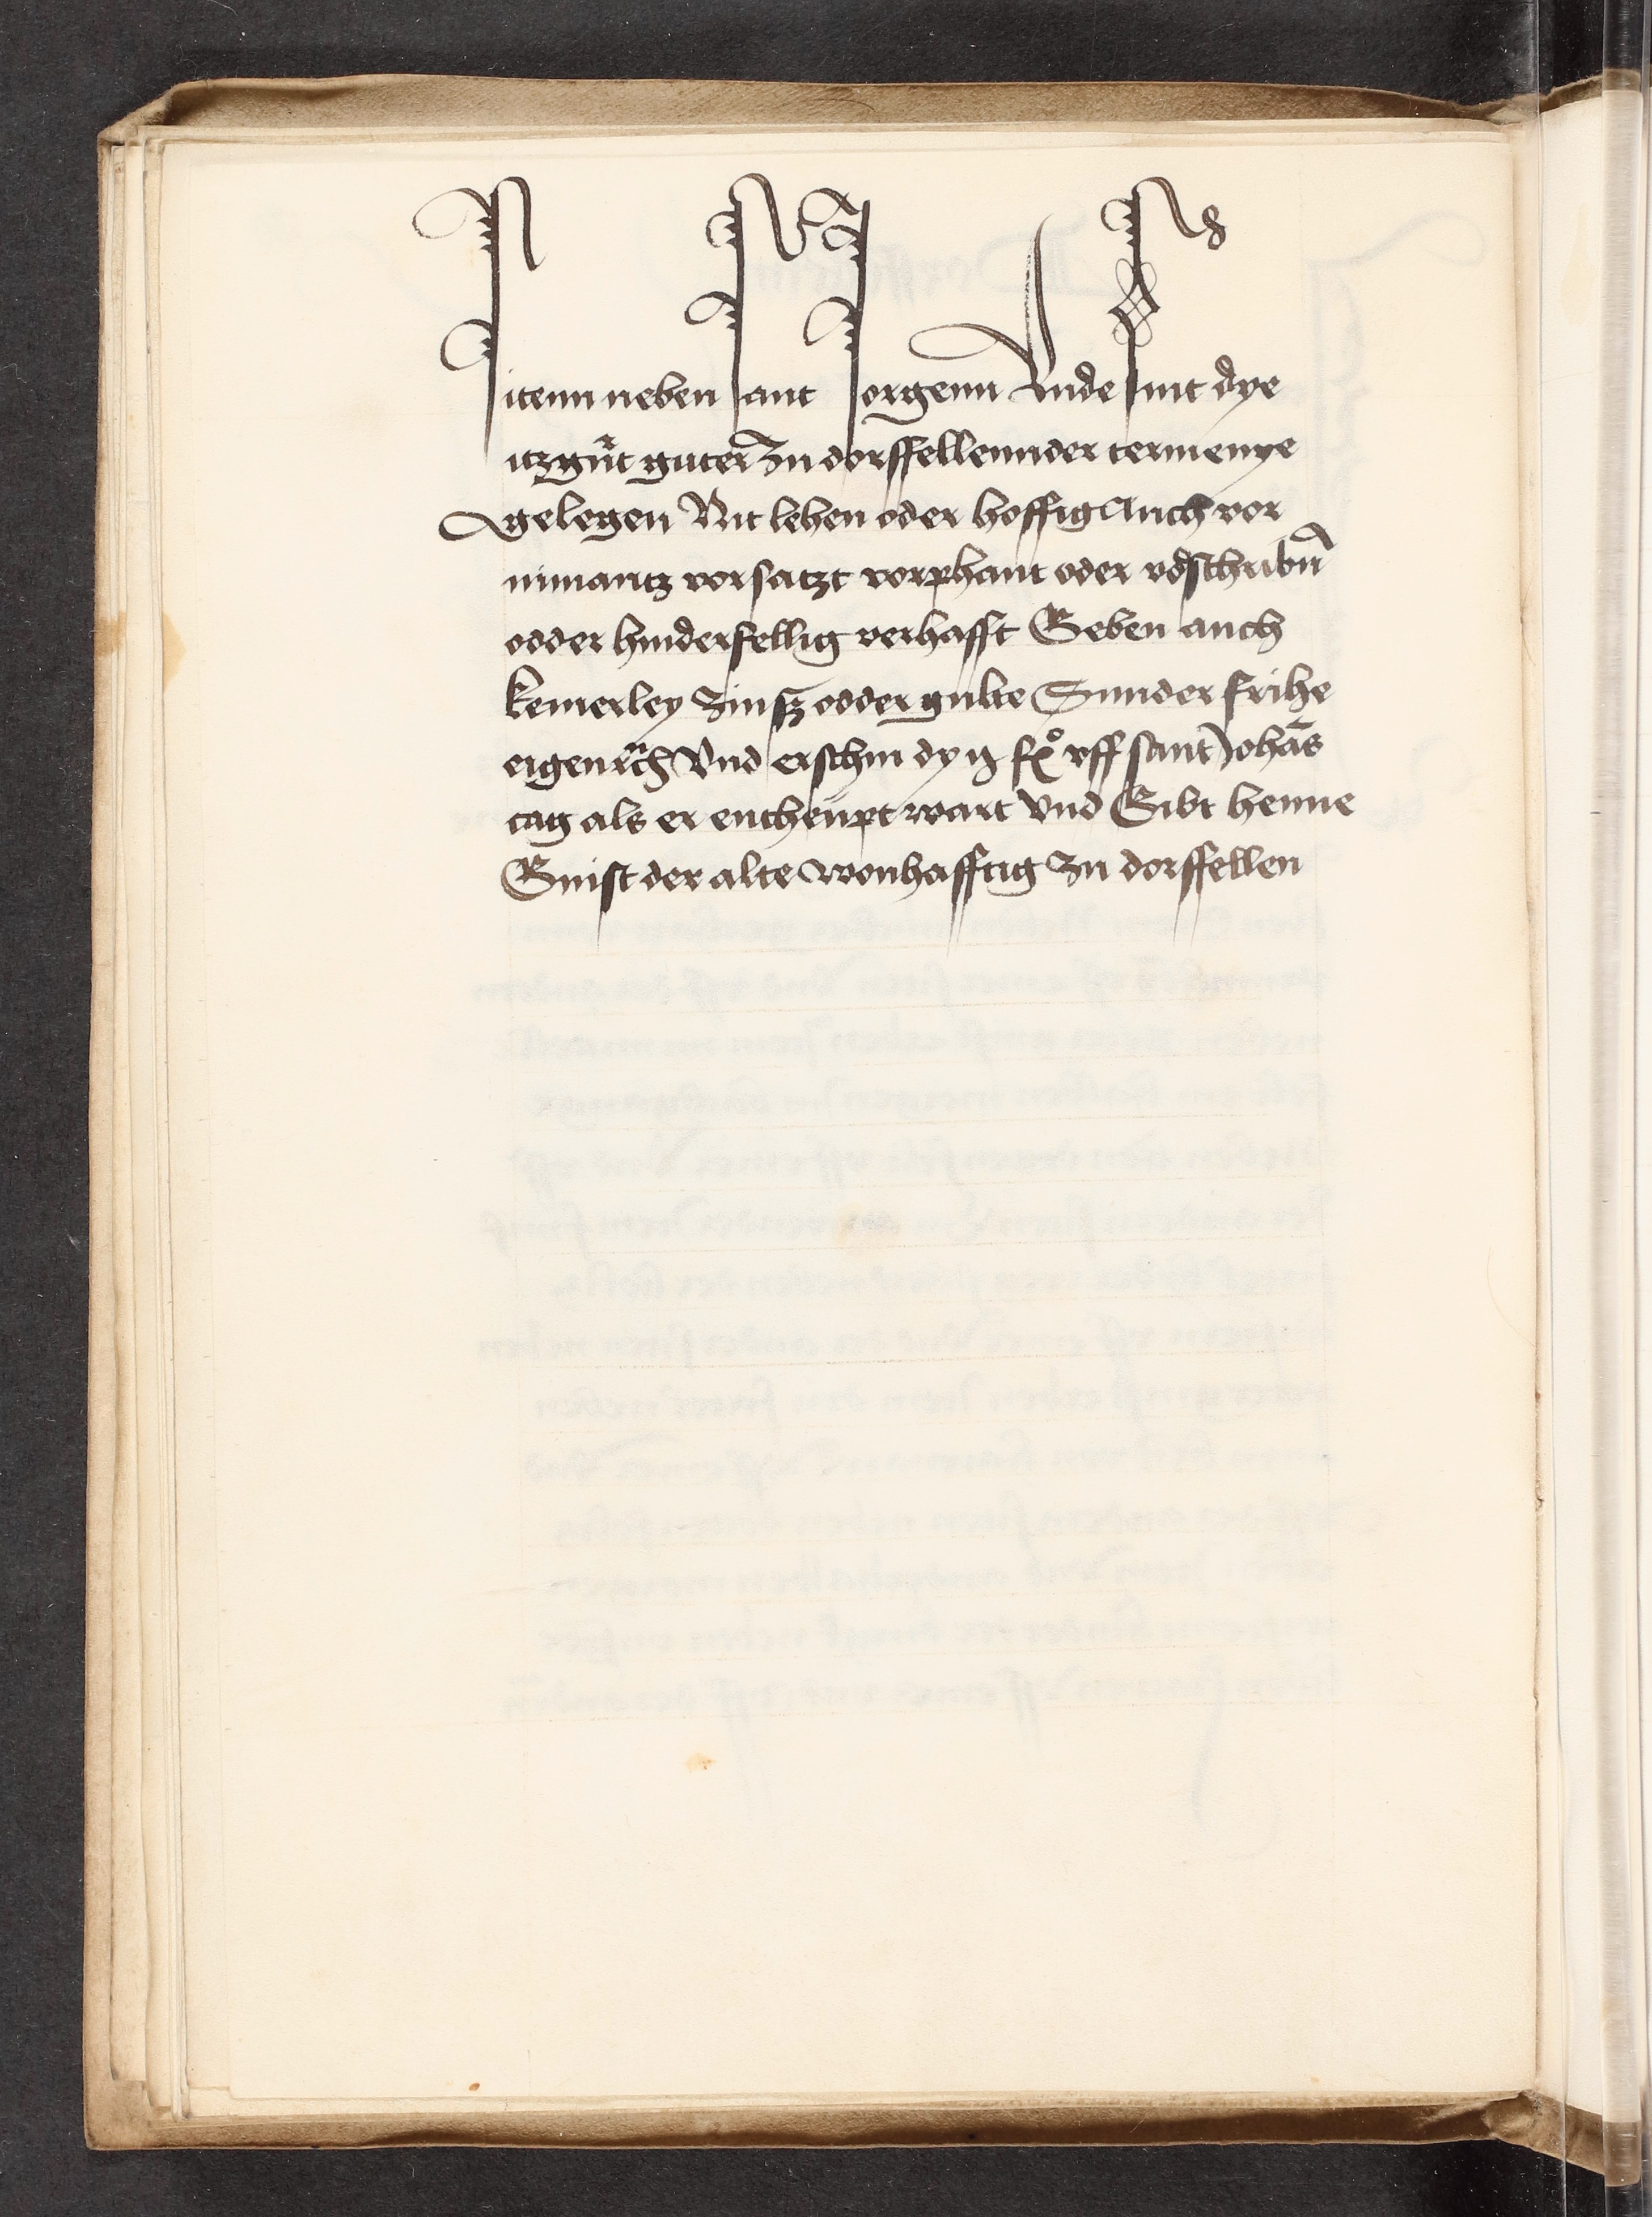 sitenn neben sant Jorgenn Unde sint dye
itzgnt guter Zu dorffellennder termenye
gelegen Nit lehen oder hoffig Auch vor
nimantz vorsatzt vorphant oder vdschribn
odder hinderfellig verhafft Geben auch
kemerley Zinsz odder gulte Sunder frihe
eigen vnd erschin dysz vff sant Johas
tag als er entheupt wart Vnd Gibt henne
Gnist der alte wonhafftig Zu dorffellen